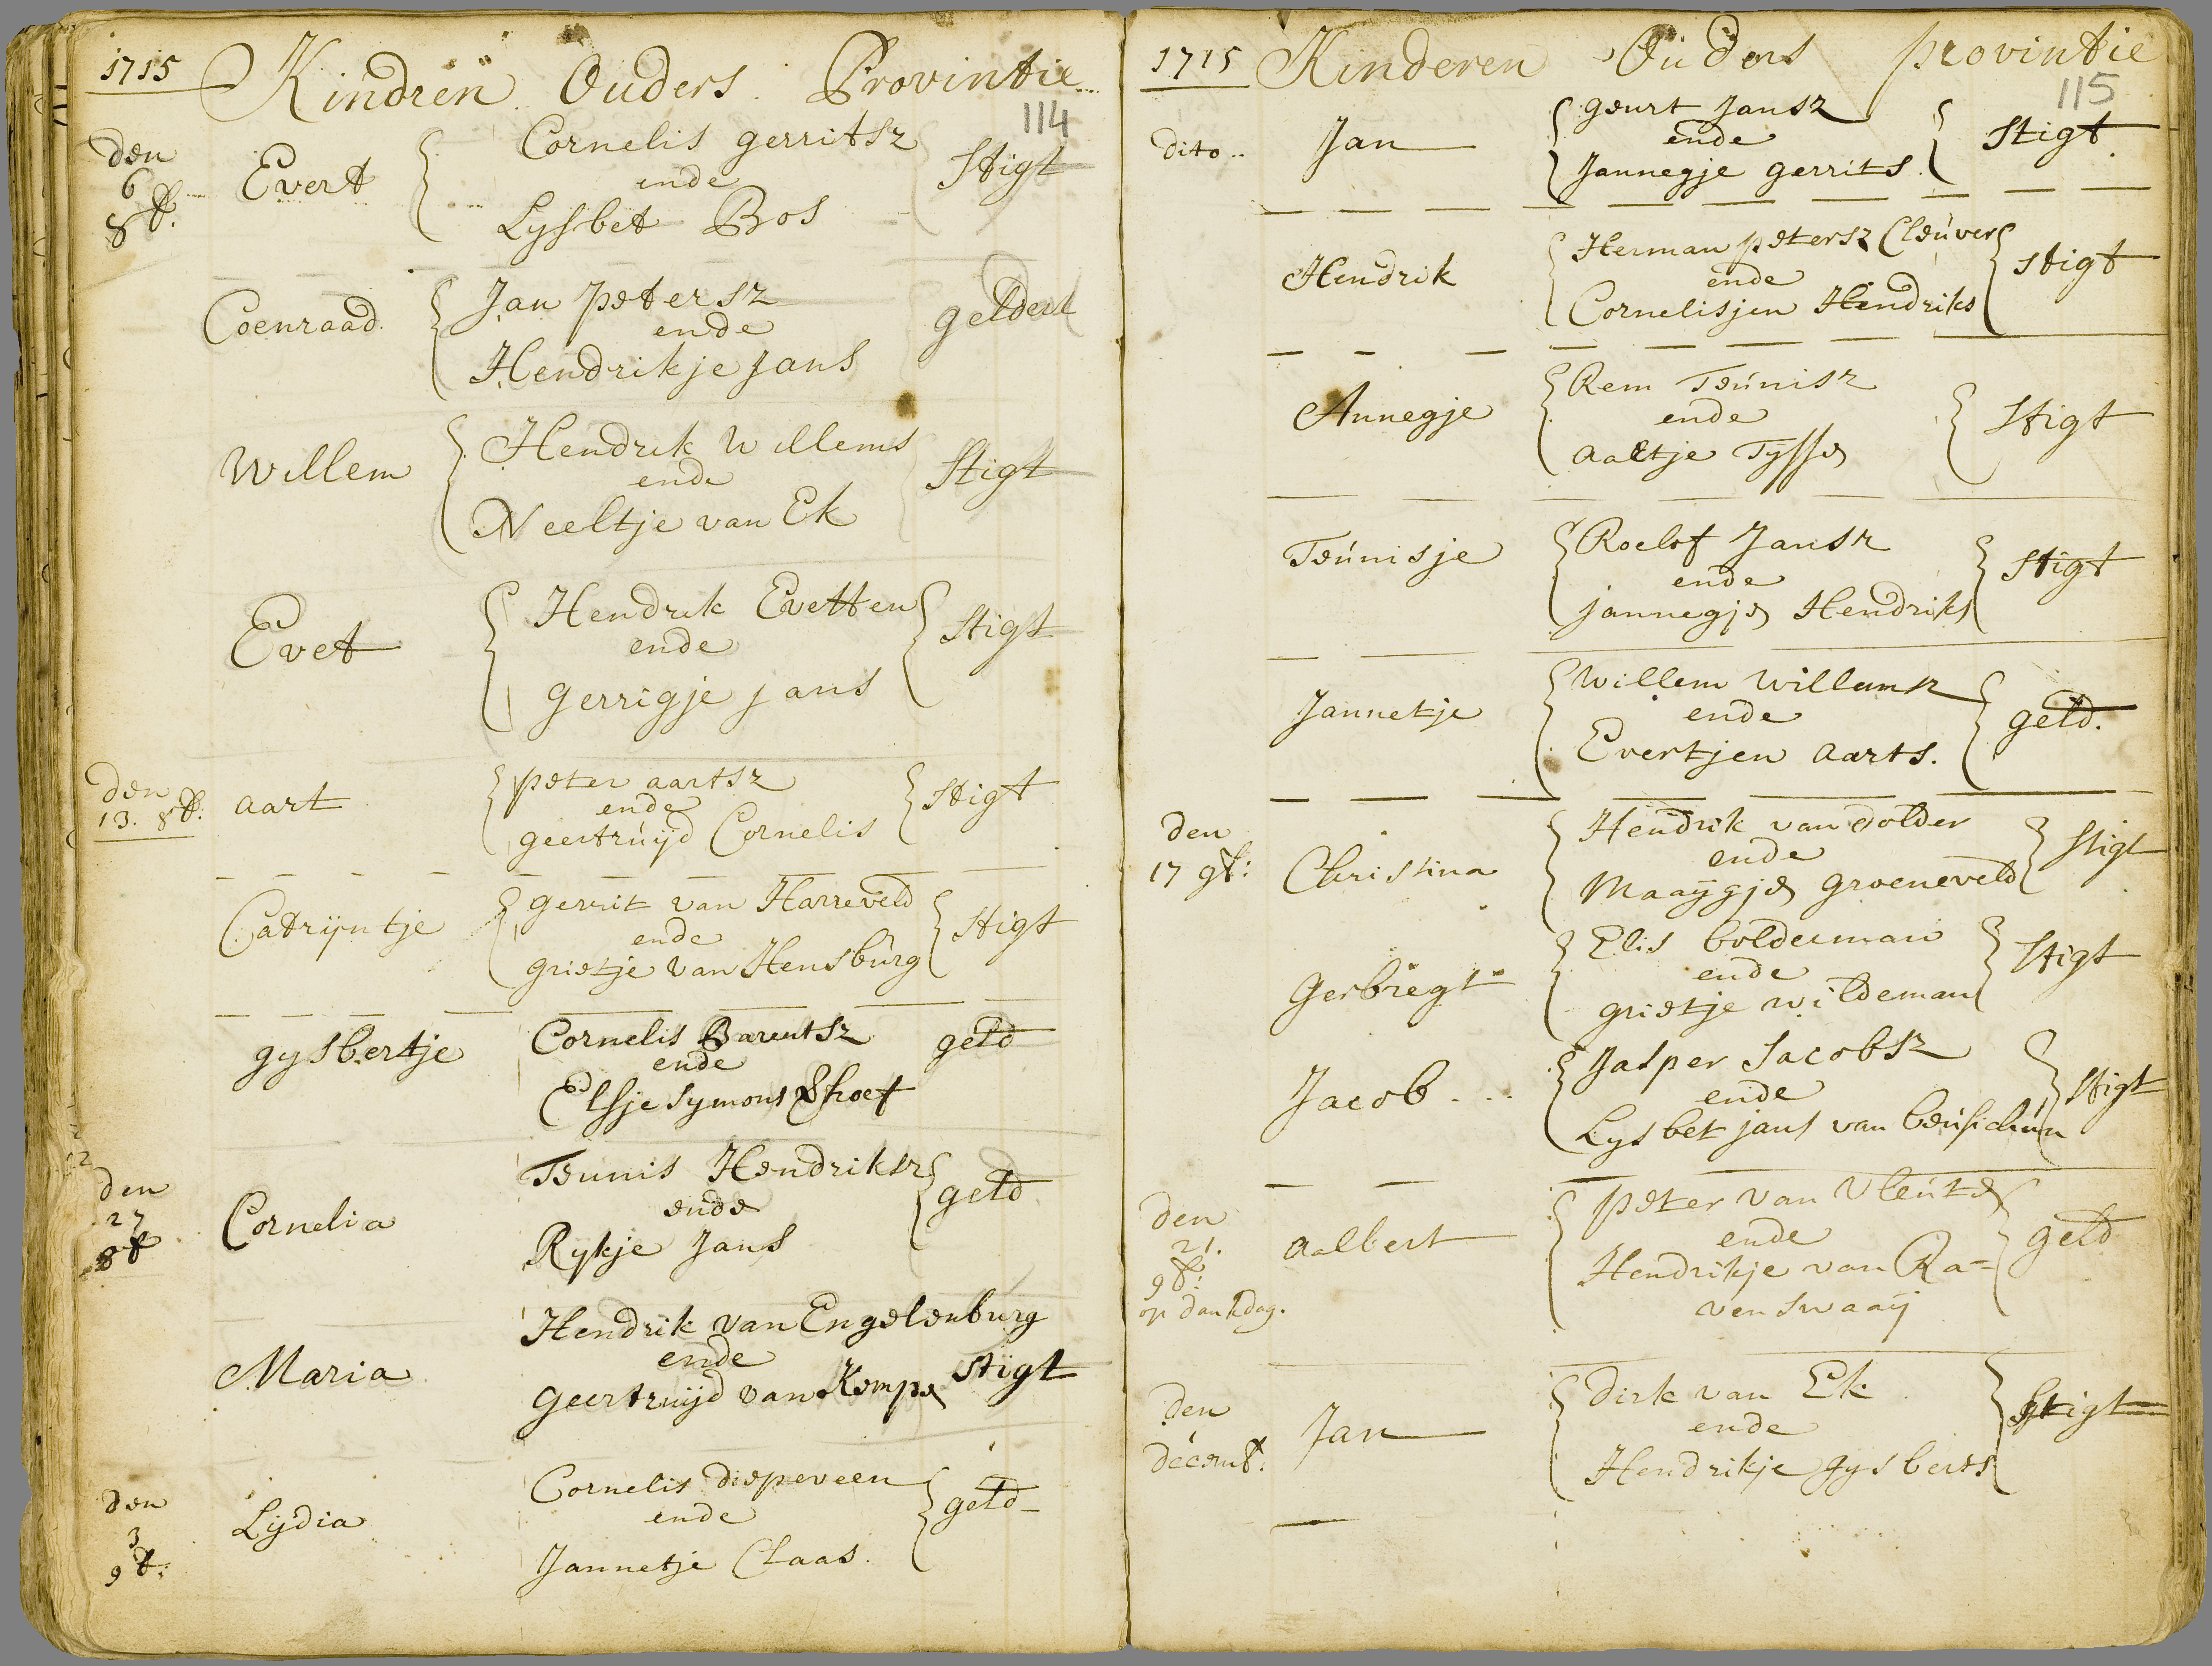 1715 Kindren Ouders Provintie
114
den 6 8b. Evert Cornelis gerritsz Stigt
ende
Lysbet Bos
Coenraad Jan petersz gelderl
ende
Hendrikje Jans
Willem Hendrik Willems Stigt
ende
Neeltje van Ek
Evet Hendrik Evetten Stigt
ende
gerrigje jans
den 13. 8b: aart peter aartsz Stigt
ende
geertruijd Cornelis
Catrijntje gerrit van Harreveld Stigt
ende
grietje van Hensburg
gysbertje Cornelis Barentsz geld
ende
Elsje Symons
den 27 8b Cornelia Teunis Hendriksz geld
ende
Rykje Jans
Maria Hendrik van Engelenburg
ende
Geertruijd van Kempe Stigt
den 3 9b: Lijdia Cornelis diepeveen geld
ende
Jannetje Claas.
1715 Kinderen Ouders provintie
115
dito.. Jan geurt Jansz Stigt
ende
Jannegje gerrits.
Hendrik Herman petersz Cleuver Stigt
ende
Cornelisjen Hendriks
Annegje Rem Teunisz Stigt
ende
aaltje Tysse
Teunisje Roelof Jansz Stigt
ende
jannegje Hendriks
Jannetje Willem Willemsz geld.
ende
Evertjen aarts.
den 17 9b: Christina Hendrik van dolder Stigt
ende
Maaijgje groeneveld
Gerbregt Elis bolderman Stigt
ende
grietje wildeman
Jacob Jasper Jacobsz Stigt
ende
Lysbet jans van
den 21. 9b: op dankdag. aalbert peter van Vleute geld
ende
Hendrikje van Ra=
venswaaij
den 1 decemb. Jan Dirk van Ek Stigt
ende
Hendrikje gysberts